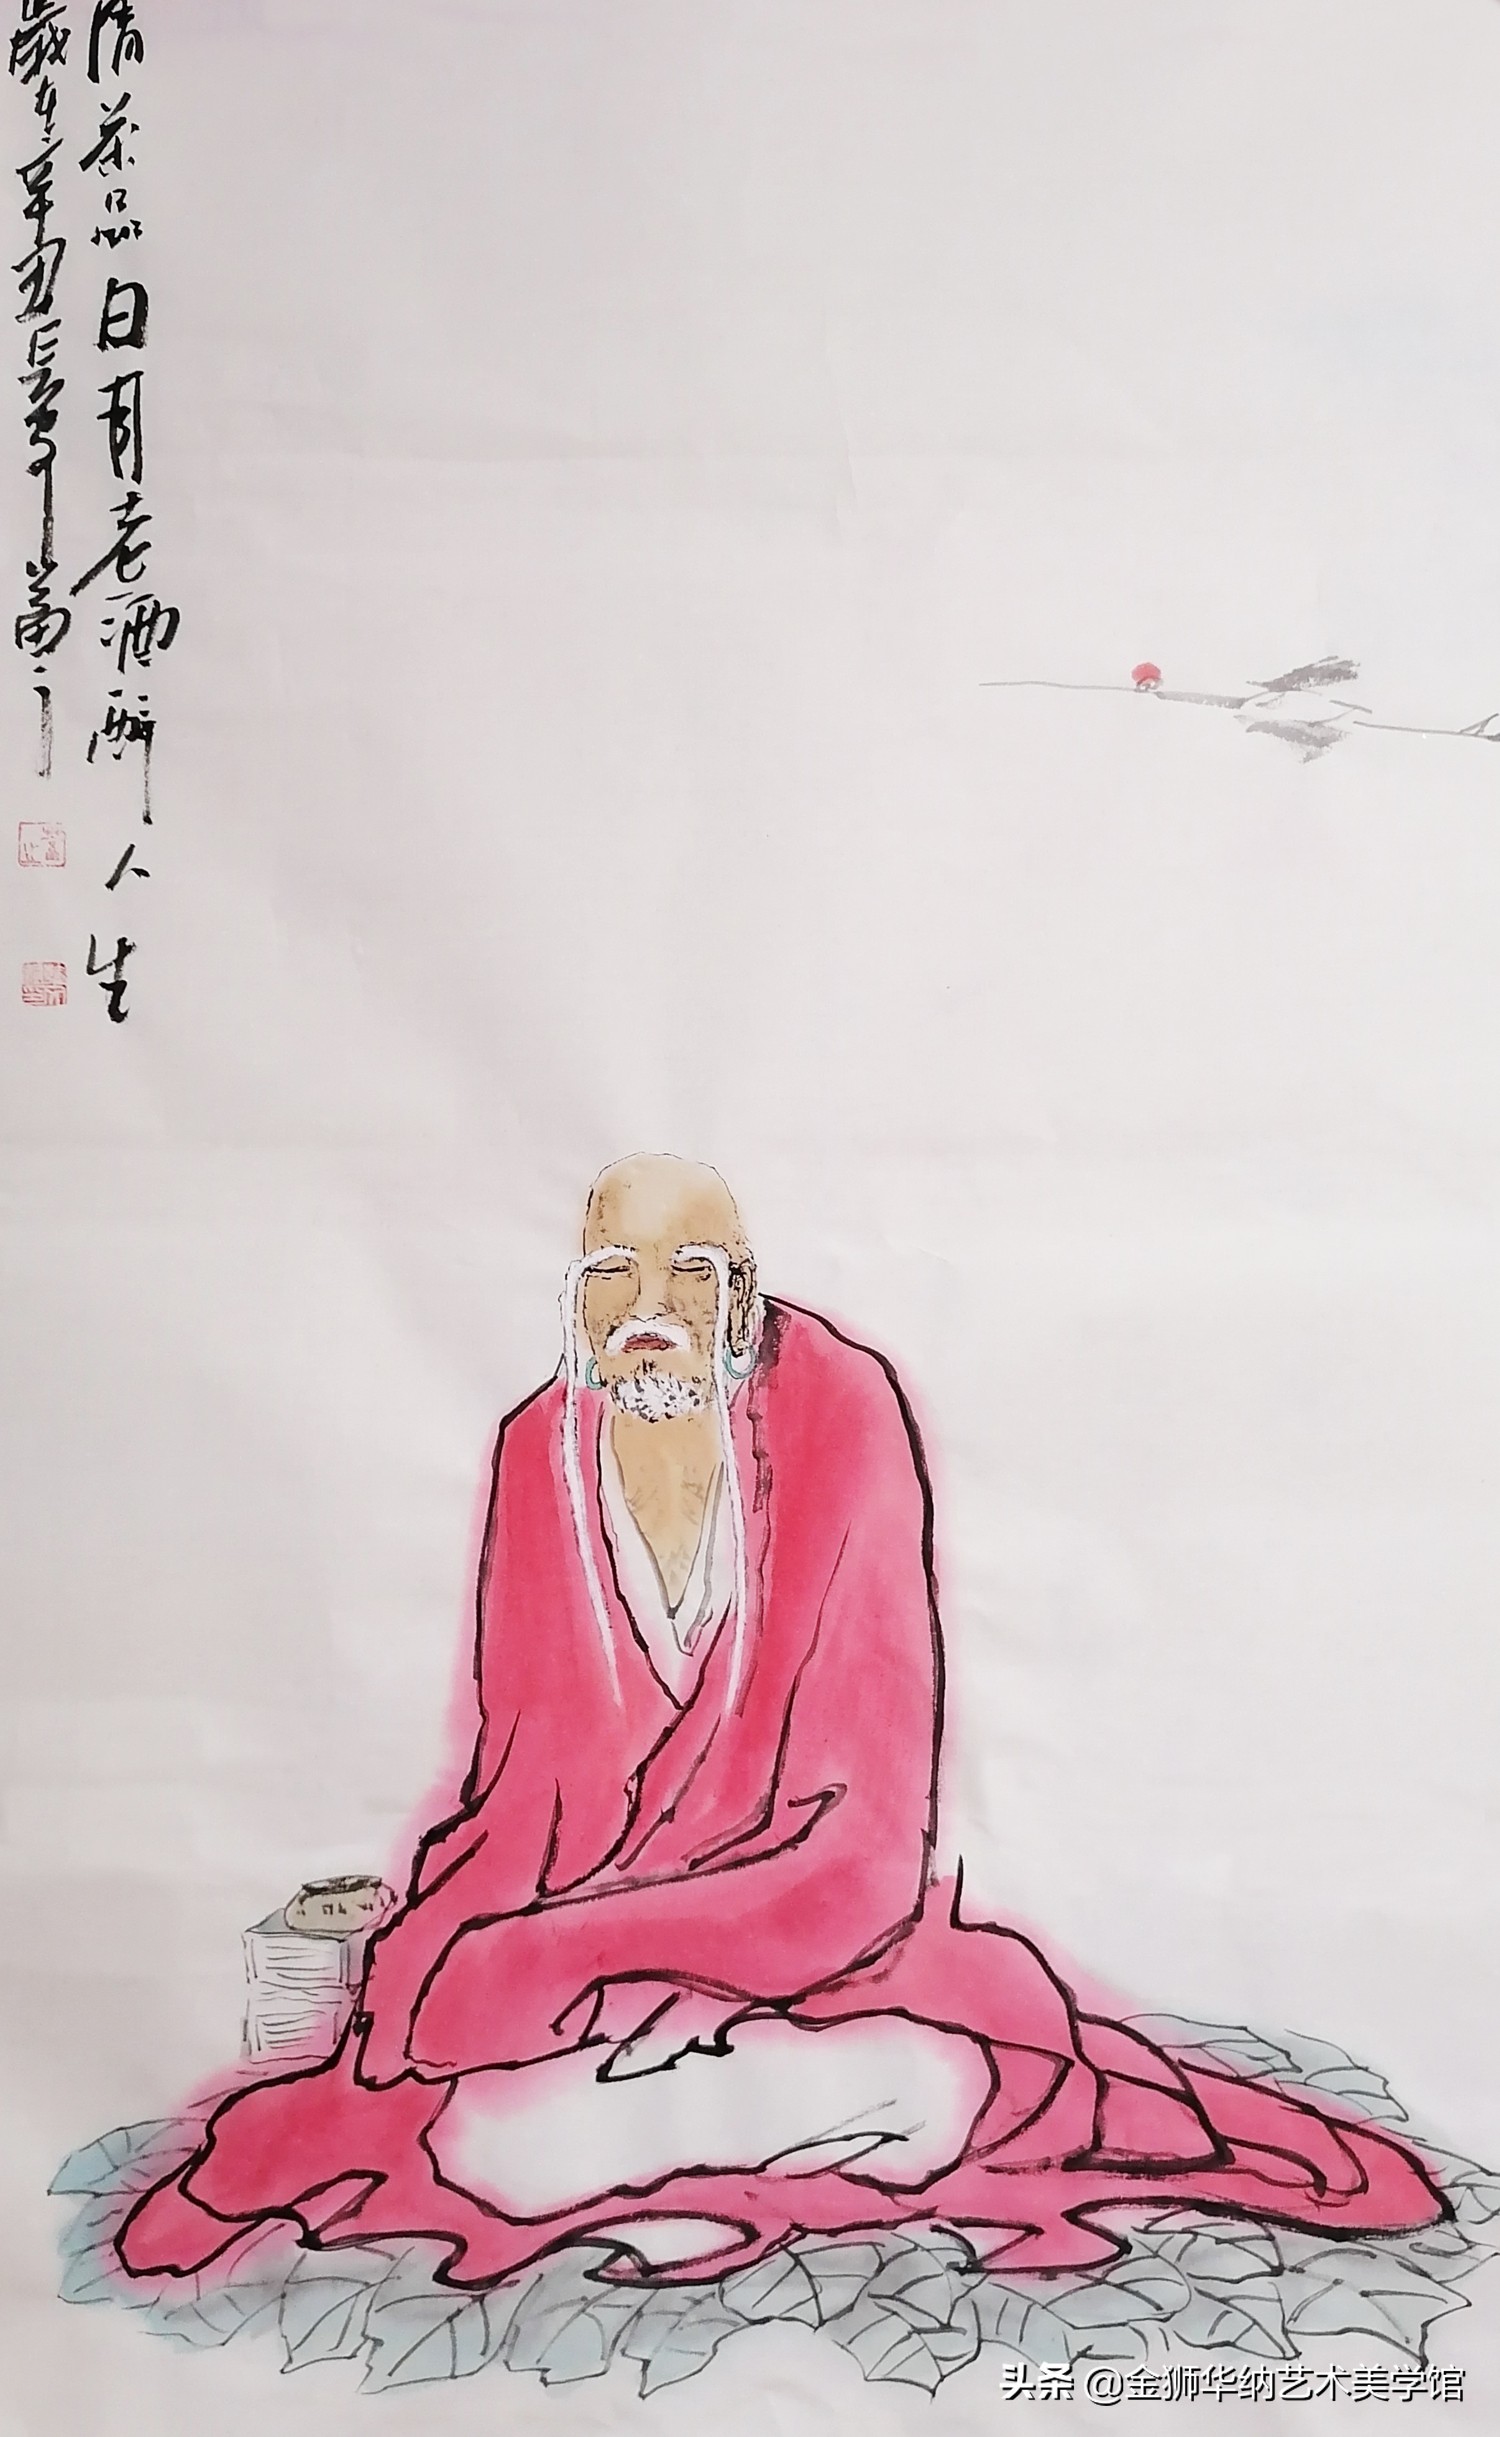 清茶品日月老酒醉人生
歲在辛丑長夏萬
头条 @金狮华纳艺术美学馆